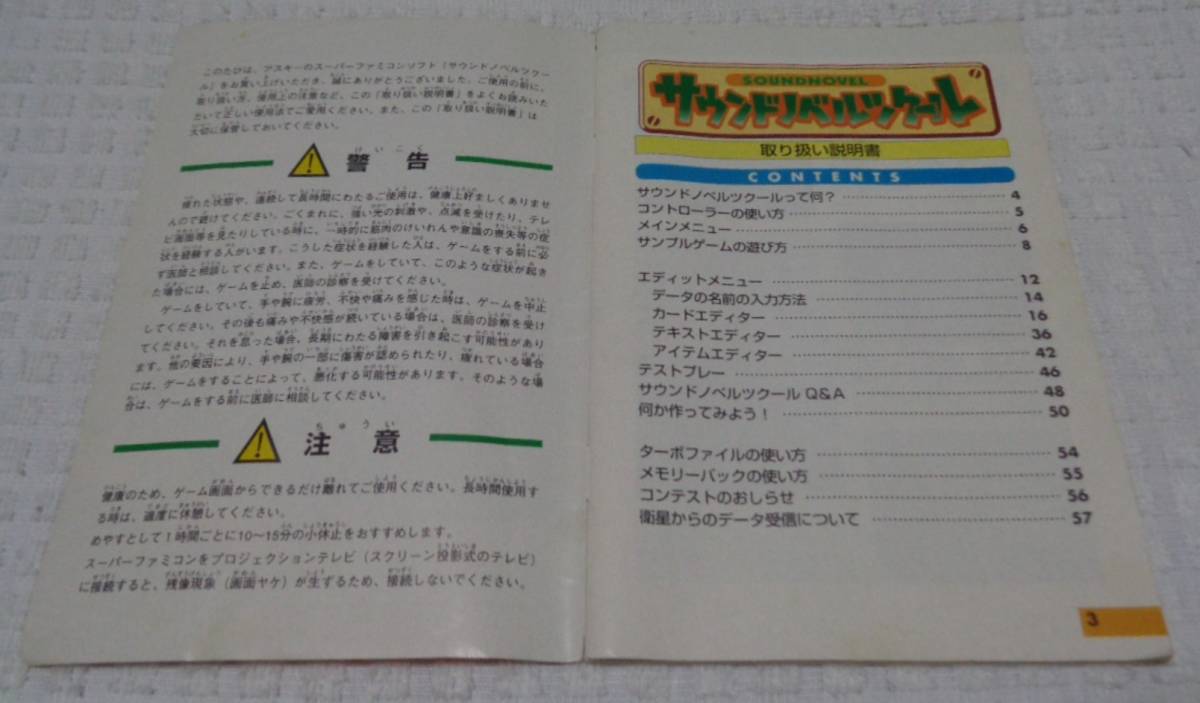 このたびは、アスキーのスーパーファミコンソフト「サウンドノベルツクー
ル」をお買い上げいただき、誠にありがとうございました。ご使用の前に、
取り扱い方、使用上の注意など、この「取り扱い説明書」をよくお読みいた
だいて正しい使用法でご愛用ください。また、この「取り扱い説明書」は
大切に保管しておいてください。
けいこく
警告
疲れた状態や、連続して長時間にわたるご使用は、健康上好ましくありませ
んので避けてください。ごくまれに、強い光の刺激や、点滅を受けたり、テレ
ビ画面等を見たりしている時に、一時的に筋肉のけいれんや意識の喪失等の症
状を経験する人がいます。こうした症状を経験した人は、ゲームをする前に必
ず医師と相談してください。また、ゲームをしていて、このような症状が起き
た場合には、ゲームを止め、医師の診察を受けてください。
ゲームをしていて、手や腕に疲労、不快や痛みを感じた時は、ゲームを中止
してください。その後も痛みや不快感が続いている場合は、医師の診察を受け
てください。それを怠った場合、長期にわたる障害を引き起こす可能性があり
ます。他の要因により、手や腕の一部に傷害が認められたり、疲れている場合
には、ゲームをすることによって、悪化する可能性があります。そのような場
合は、ゲームをする前に医師に相談してください。
ちゅうい
注意
健康のため、ゲーム画面からできるだけ離れてご使用ください。長時間使用す
る時は、適度に休憩してください。
めやすとして1時間ごとに10〜15分の小休止をおすすめします。
スーパーファミコンをプロジェクションテレビ(スクリーン投影式のテレビ)
に接続すると、残像現象(画面ヤケ)が生ずるため、接続しないでください。
SOUNDNOVEL
サウンドノベルツクール
取り扱い説明書
CONTENTS
サウンドノベルツクールって何? 4
コントローラーの使い方 5
メインメニュー 6
サンプルゲームの遊び方 8
エディットメニュー 12
データの名前の入力方法 14
カードエディター 16
テキストエディター 36
アイテムエディター 42
テストプレー 46
サウンドノベルツクール Q&A 48
何か作ってみよう! 50
ターボファイルの使い方 54
メモリーパックの使い方 55
コンテストのおしらせ 56
衛星からのデータ受信について 57
3